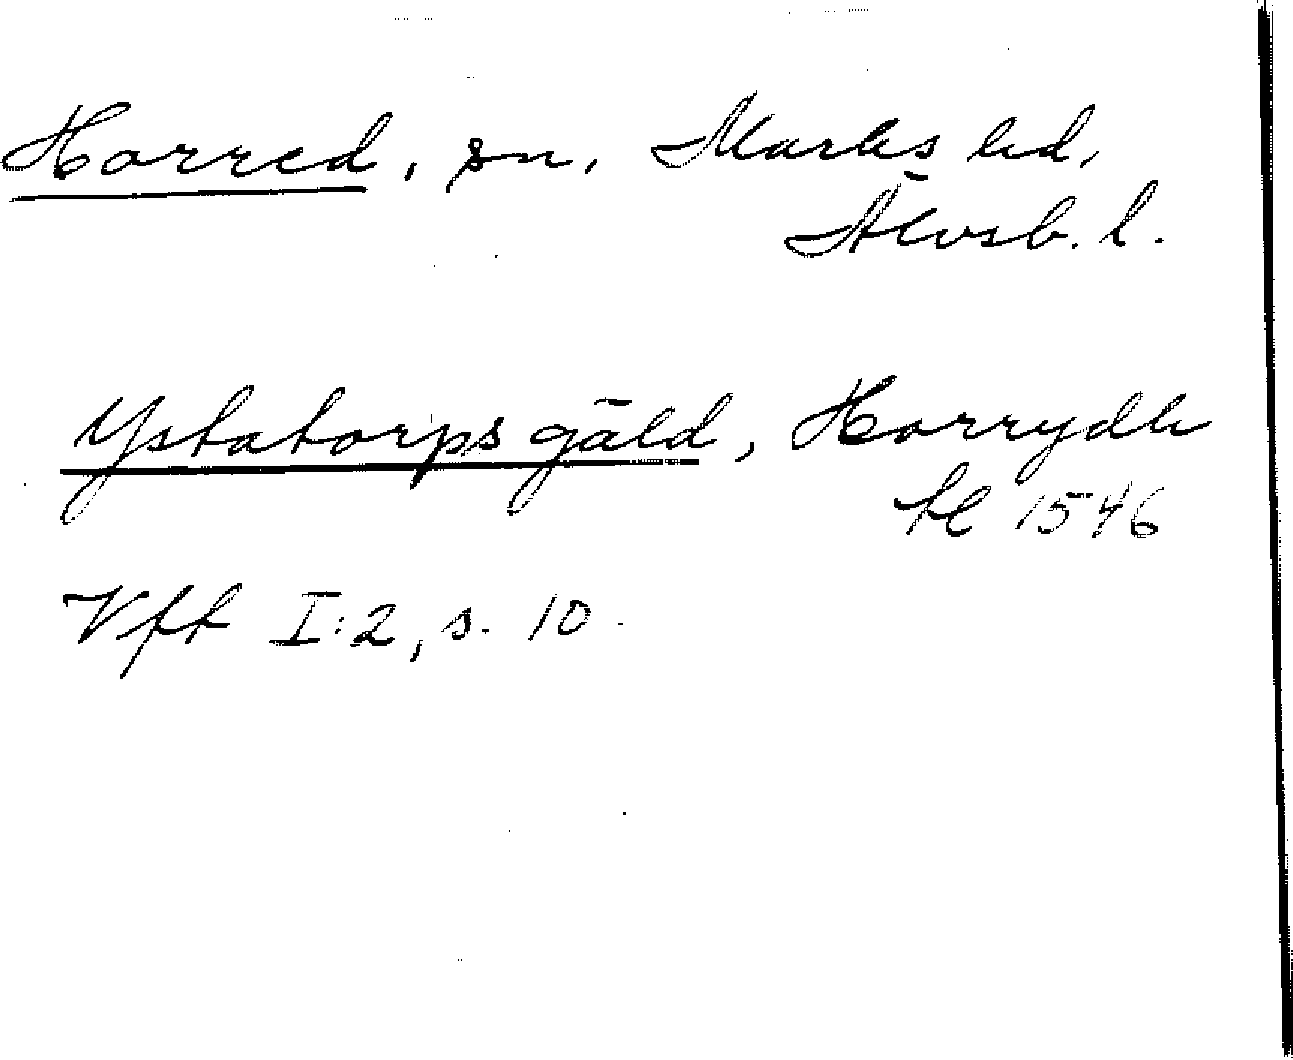 Horred, sn, Marks hd,
Älvsb. l.
Ystatorps gäld, Horrydh
sk 1546
Vft I:2, s. 10.